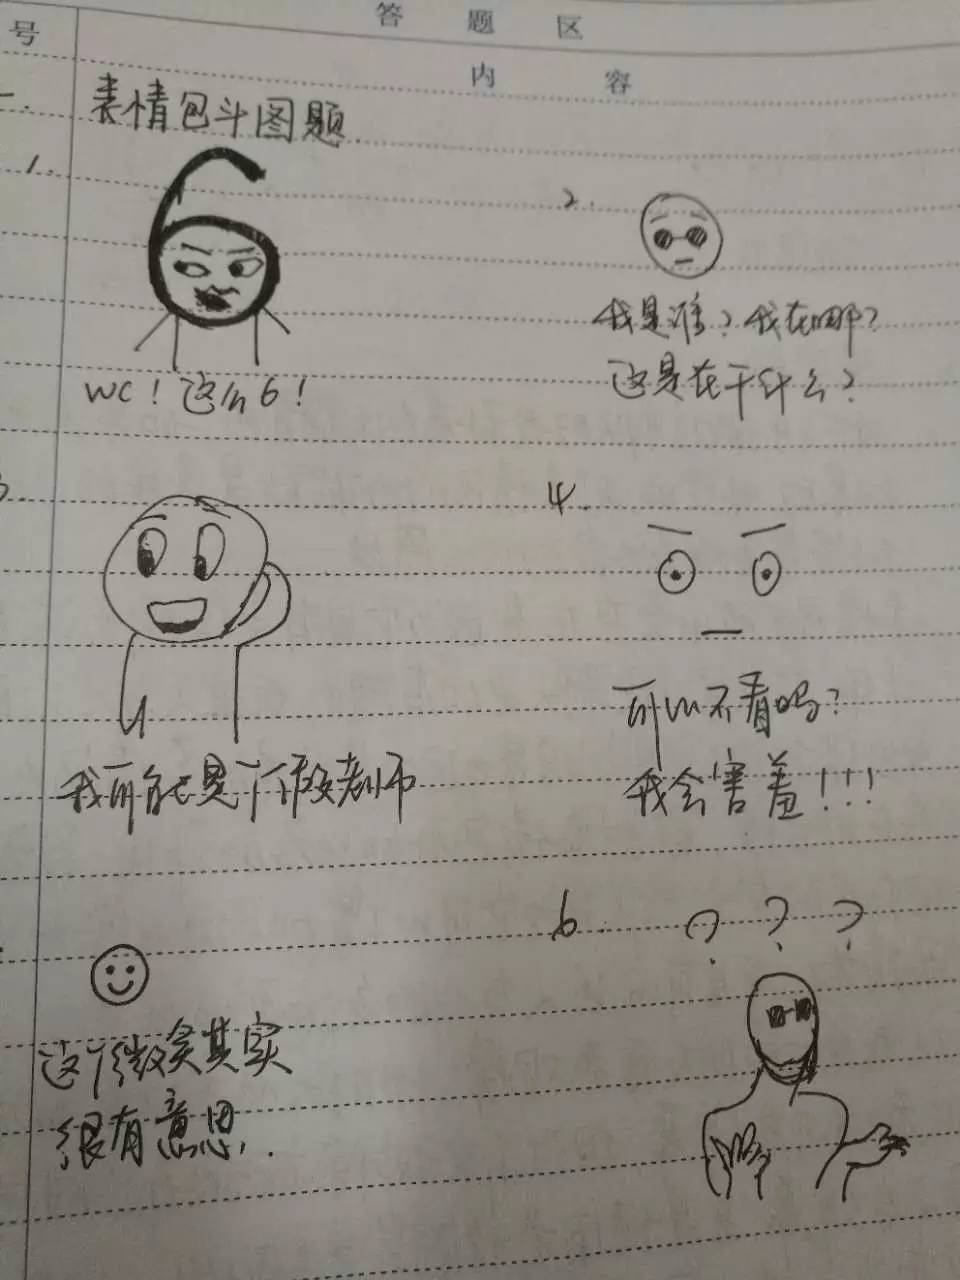 答题区
号
内容
一.
表情包斗图题.
1.
WC！这么6！
2.
我是谁？我在哪？
这是在干什么？
3.
我可能是个假老师
4.
可以不看吗？
我会害羞！！！
这个微笑其实
很有意思.
6.
? ? ?